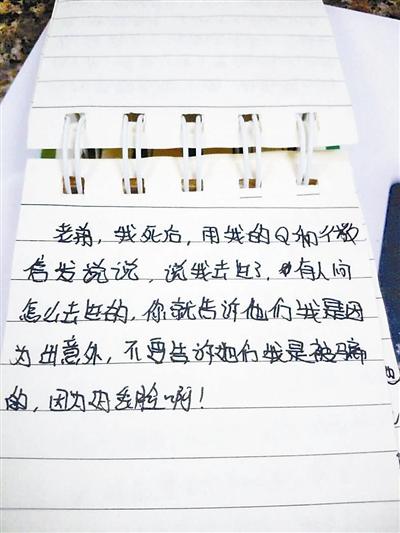 老弟，我死后，用我的Q和微
信发说说，说我去世了，有人问
怎么去世的，你就告诉他们我是因
为出意外，不要告诉他们我是被骗
的，因为丢脸啊！